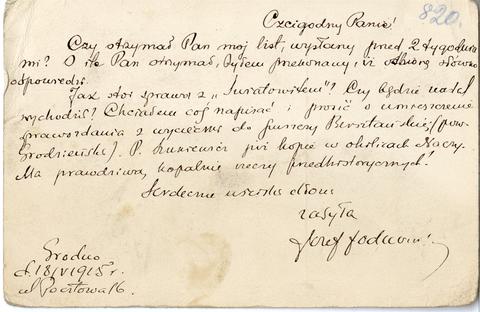 820.
Czcigodny Panie!
Czy otrzymał Pan mój list, wysłany przed 2 tygodnia
mi? O ile Pan otrzymał, byłem przekonany, iż odbiorę słówko
odpowiedzi.
Jak stoi sprawa z „Światowitem"? Czy będzie nadal
wychodził? Chciałem coś napisać i prosić o umieszczenie
sprawozdania z wycieczki do puszczy Bersztańskiej (pow.
Grodzieński). P. Szukiewicz już kopie w okolicach Naczy.
Ma prawdziwą kopalnię rzeczy przedhistorycznych!
Serdeczne uściski dłoni
zasyła
Józef Jodkowski
Grodno
d. 18/VI 1915 r.
ul. Pocztowa 16.